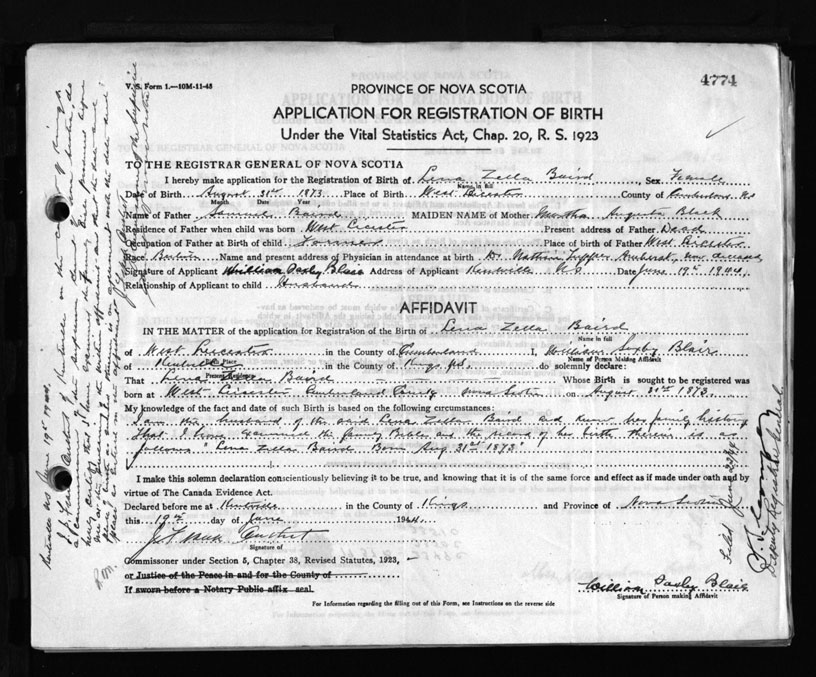 4774
V. S. Form 1.—10M-11-43
PROVINCE OF NOVA SCOTIA
APPLICATION FOR REGISTRATION OF BIRTH
Under the Vital Statistics Act, Chap. 20, R. S. 1923
TO THE REGISTRAR GENERAL OF NOVA SCOTIA
I hereby make application for the Registration of Birth of Lena Zella Baird Sex Female
Name in full
Date of Birth August 31st 1873 Place of Birth West Leicester County of Cumberland N.S
Month Date Year
Name of Father Samuel Baird MAIDEN NAME of Mother Martha Augusta Black
Residence of Father when child was born West Leicester Present address of Father Dead
Occupation of Father at Birth of child Farmer Place of birth of Father West Leicester
Race Name and present address of Physician in attendance at birth Dr. Nathan Tupper Amherst, now deceased
Signature of Applicant William Saxby Blair Address of Applicant Kentville N.S. Date June 19th 1944
Relationship of Applicant to child Husband
AFFIDAVIT
IN THE MATTER of the application for Registration of the Birth of Lena Zella Baird
Name in full
of West Leicester in the County of Cumberland I, William Saxby Blair
Place Name of Person Making Affidavit
of Kentville in the County of Kings do solemnly declare:
Present Residence
That Lena Zella Baird Whose Birth is sought to be registered was
born at West Leicester Cumberland County Nova Scotia on August 31st 1873
My knowledge of the fact and date of such Birth is based on the following circumstances:
I am the husband of the said Lena Zella Baird and know her family history
That I have examined the family Bible and the record of her birth therein is as
follows: Lena Zella Baird Born Aug 31st 1873
I make this solemn declaration conscientiously believing it to be true, and knowing that it is of the same force and effect as if made under oath and by
virtue of The Canada Evidence Act.
Declared before me at Kentville in the County of Kings and Province of Nova Scotia
this 19th day of June 1944
Signature of
Commissioner under Section 5, Chapter 38, Revised Statutes, 1923,
or Justice of the Peace in and for the County of
If sworn before a Notary Public affix seal.
William Saxby Blair
Signature of Person making Affidavit
For Information regarding the filling out of this Form, see Instructions on the reverse side
Kentville NS June 19th 1944
Filed June 22/44
Deputy Registrar General